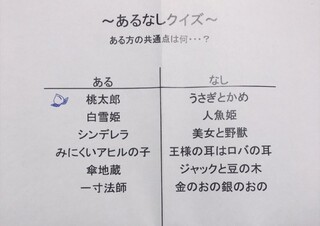 ～あるなしクイズ～
ある方の共通点は何・・・？
ある なし
桃太郎 うさぎとかめ
白雪姫 人魚姫
シンデレラ 美女と野獣
みにくいアヒルの子 王様の耳はロバの耳
傘地蔵 ジャックと豆の木
一寸法師 金のおの銀のおの